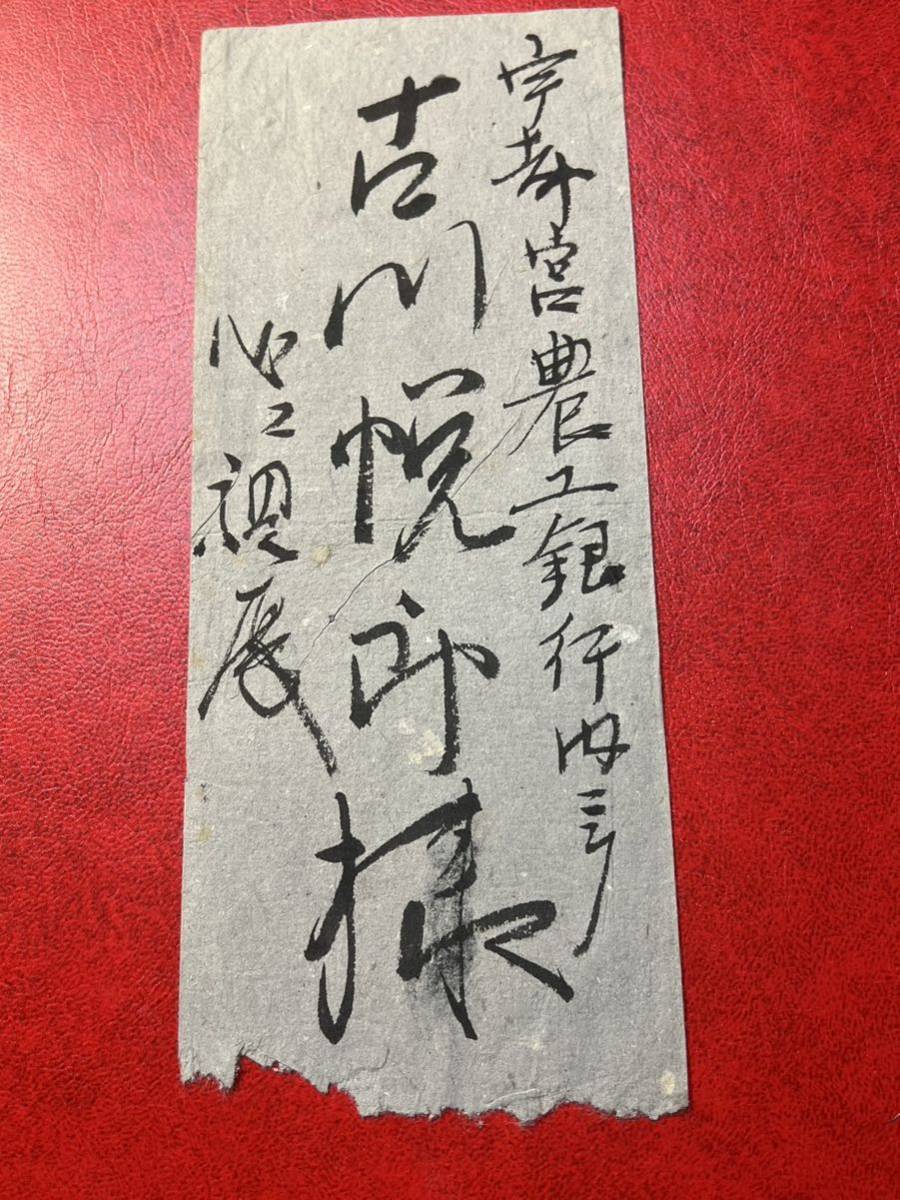 宇都宮農工銀行内ニテ
古川悦郎様
必ズ親展